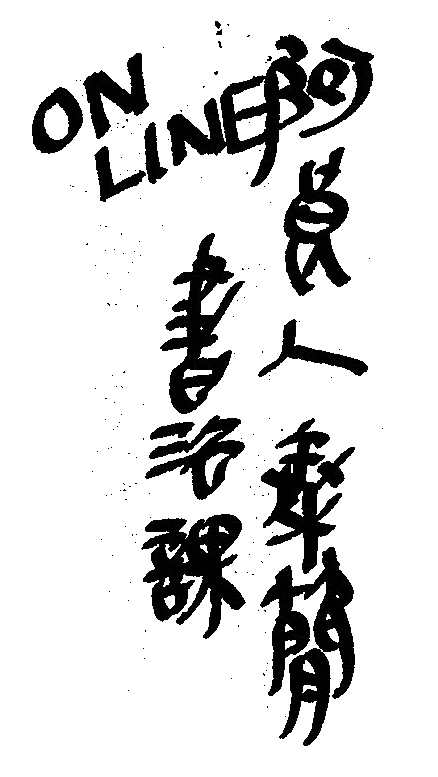 阿良人秦簡
ON
LINE
書法課